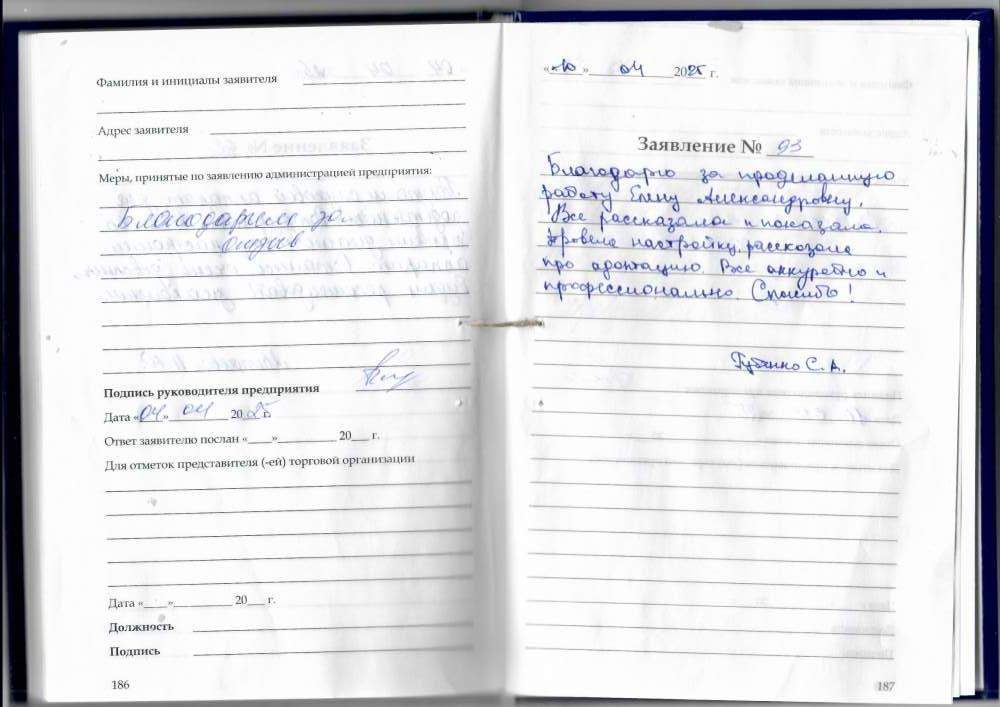 Фамилия и инициалы заявителя
Адрес заявителя
Меры, принятые по заявлению администрацией предприятия:
Благодарим за
отзыв
Подпись руководителя предприятия
Дата «04» 04 2025 г.
Ответ заявителю послан «___»__________ 20___ г.
Для отметок представителя (-ей) торговой организации
Дата «___»__________ 20___ г.
Должность
Подпись
186
«10» 04 2025 г.
Заявление № 93
Благодарю за проделанную
работу Елену Александровну.
Все рассказала и показала.
Провела настройку, рассказала
про адаптацию. Все аккуратно и
профессионально. Спасибо!
С. А.
187